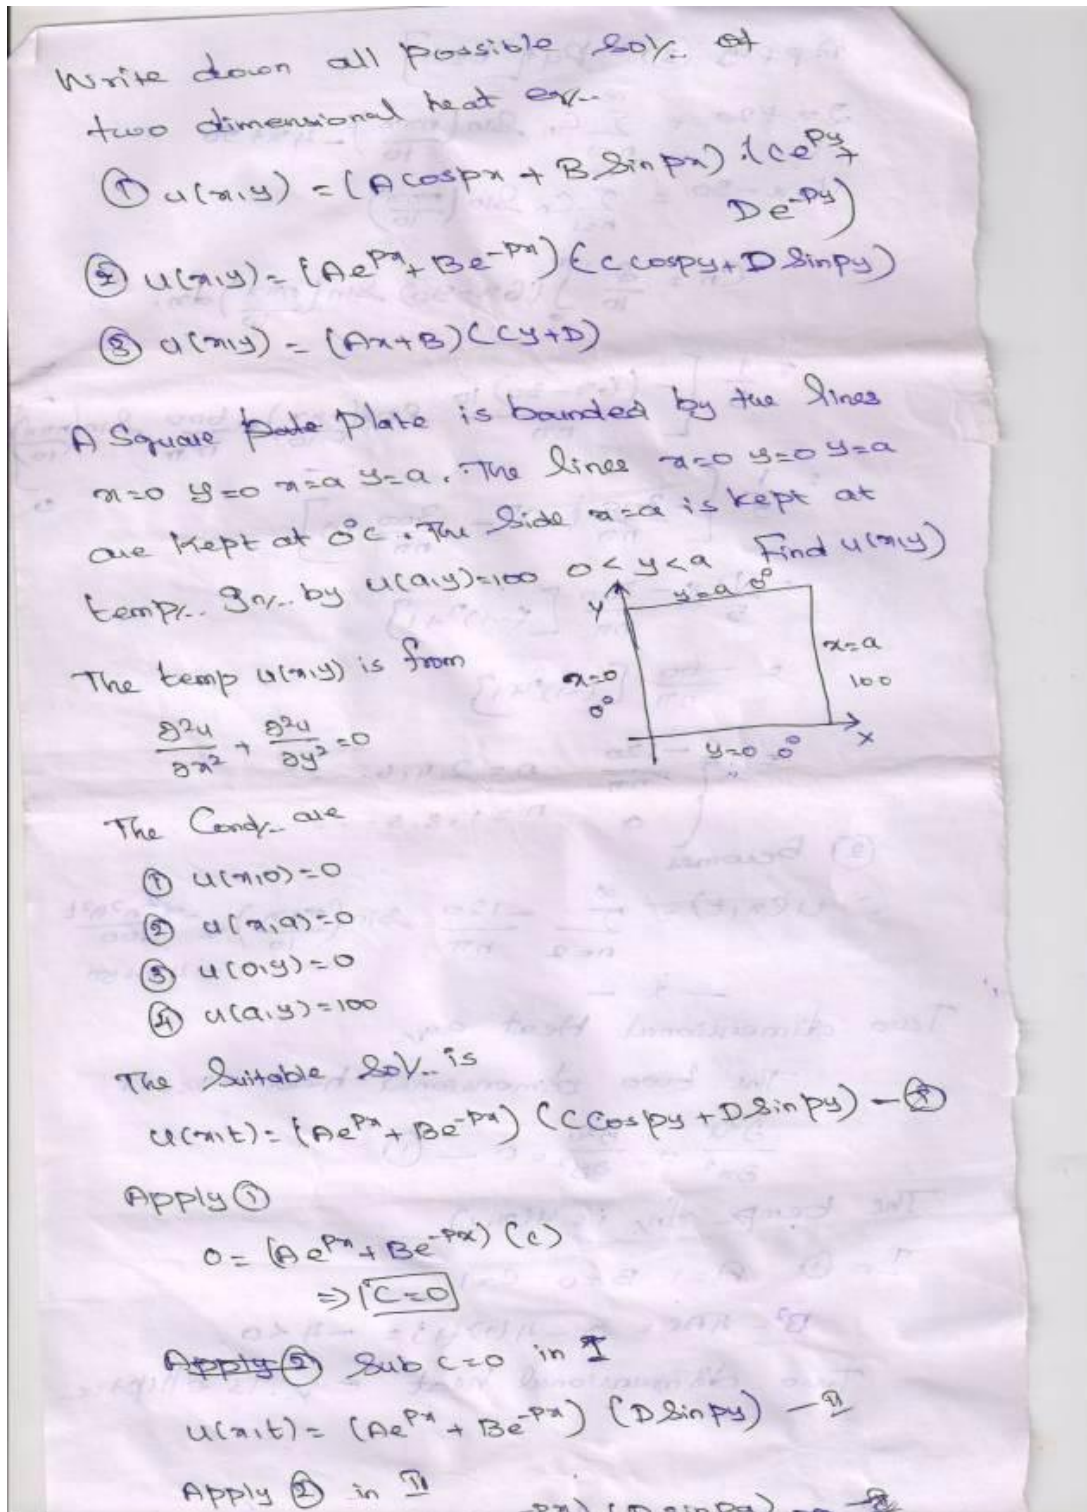 Write down all possible sol/.. of
two dimensional heat eq/..
① u(x,y) = (A cospx + B Sinpx) (Ce^{py} +
De^{-py})
② u(x,y) = (Ae^{px} + Be^{-px}) (C cospy + D Sinpy)
③ u(x,y) = (Ax+B) (Cy+D)
A Square plate is bounded by the lines
x=0 y=0 x=a y=a. The lines x=0 y=0 y=a
are kept at 0°c. The Side x=a is kept at
temp/.. Gn/.. by u(a,y)=100 0<y<a Find u(x,y)
y=a 0°
Y
x=a
100
x=0
0°
y=0 0°
X
The temp u(x,y) is from
∂²u/∂x² + ∂²u/∂y² = 0
The Cond/.. are
① u(x,0)=0
② u(x,a)=0
③ u(0,y)=0
④ u(a,y)=100
The Suitable Sol/.. is
u(x,t) = (Ae^{px} + Be^{-px}) (C Cospy + D Sinpy) —
Apply ①
0 = (Ae^{px} + Be^{-px}) (c)
⇒ C=0
Apply ② Sub C=0 in I
u(x,t) = (Ae^{px} + Be^{-px}) (D Sinpy) — II
Apply ② in II